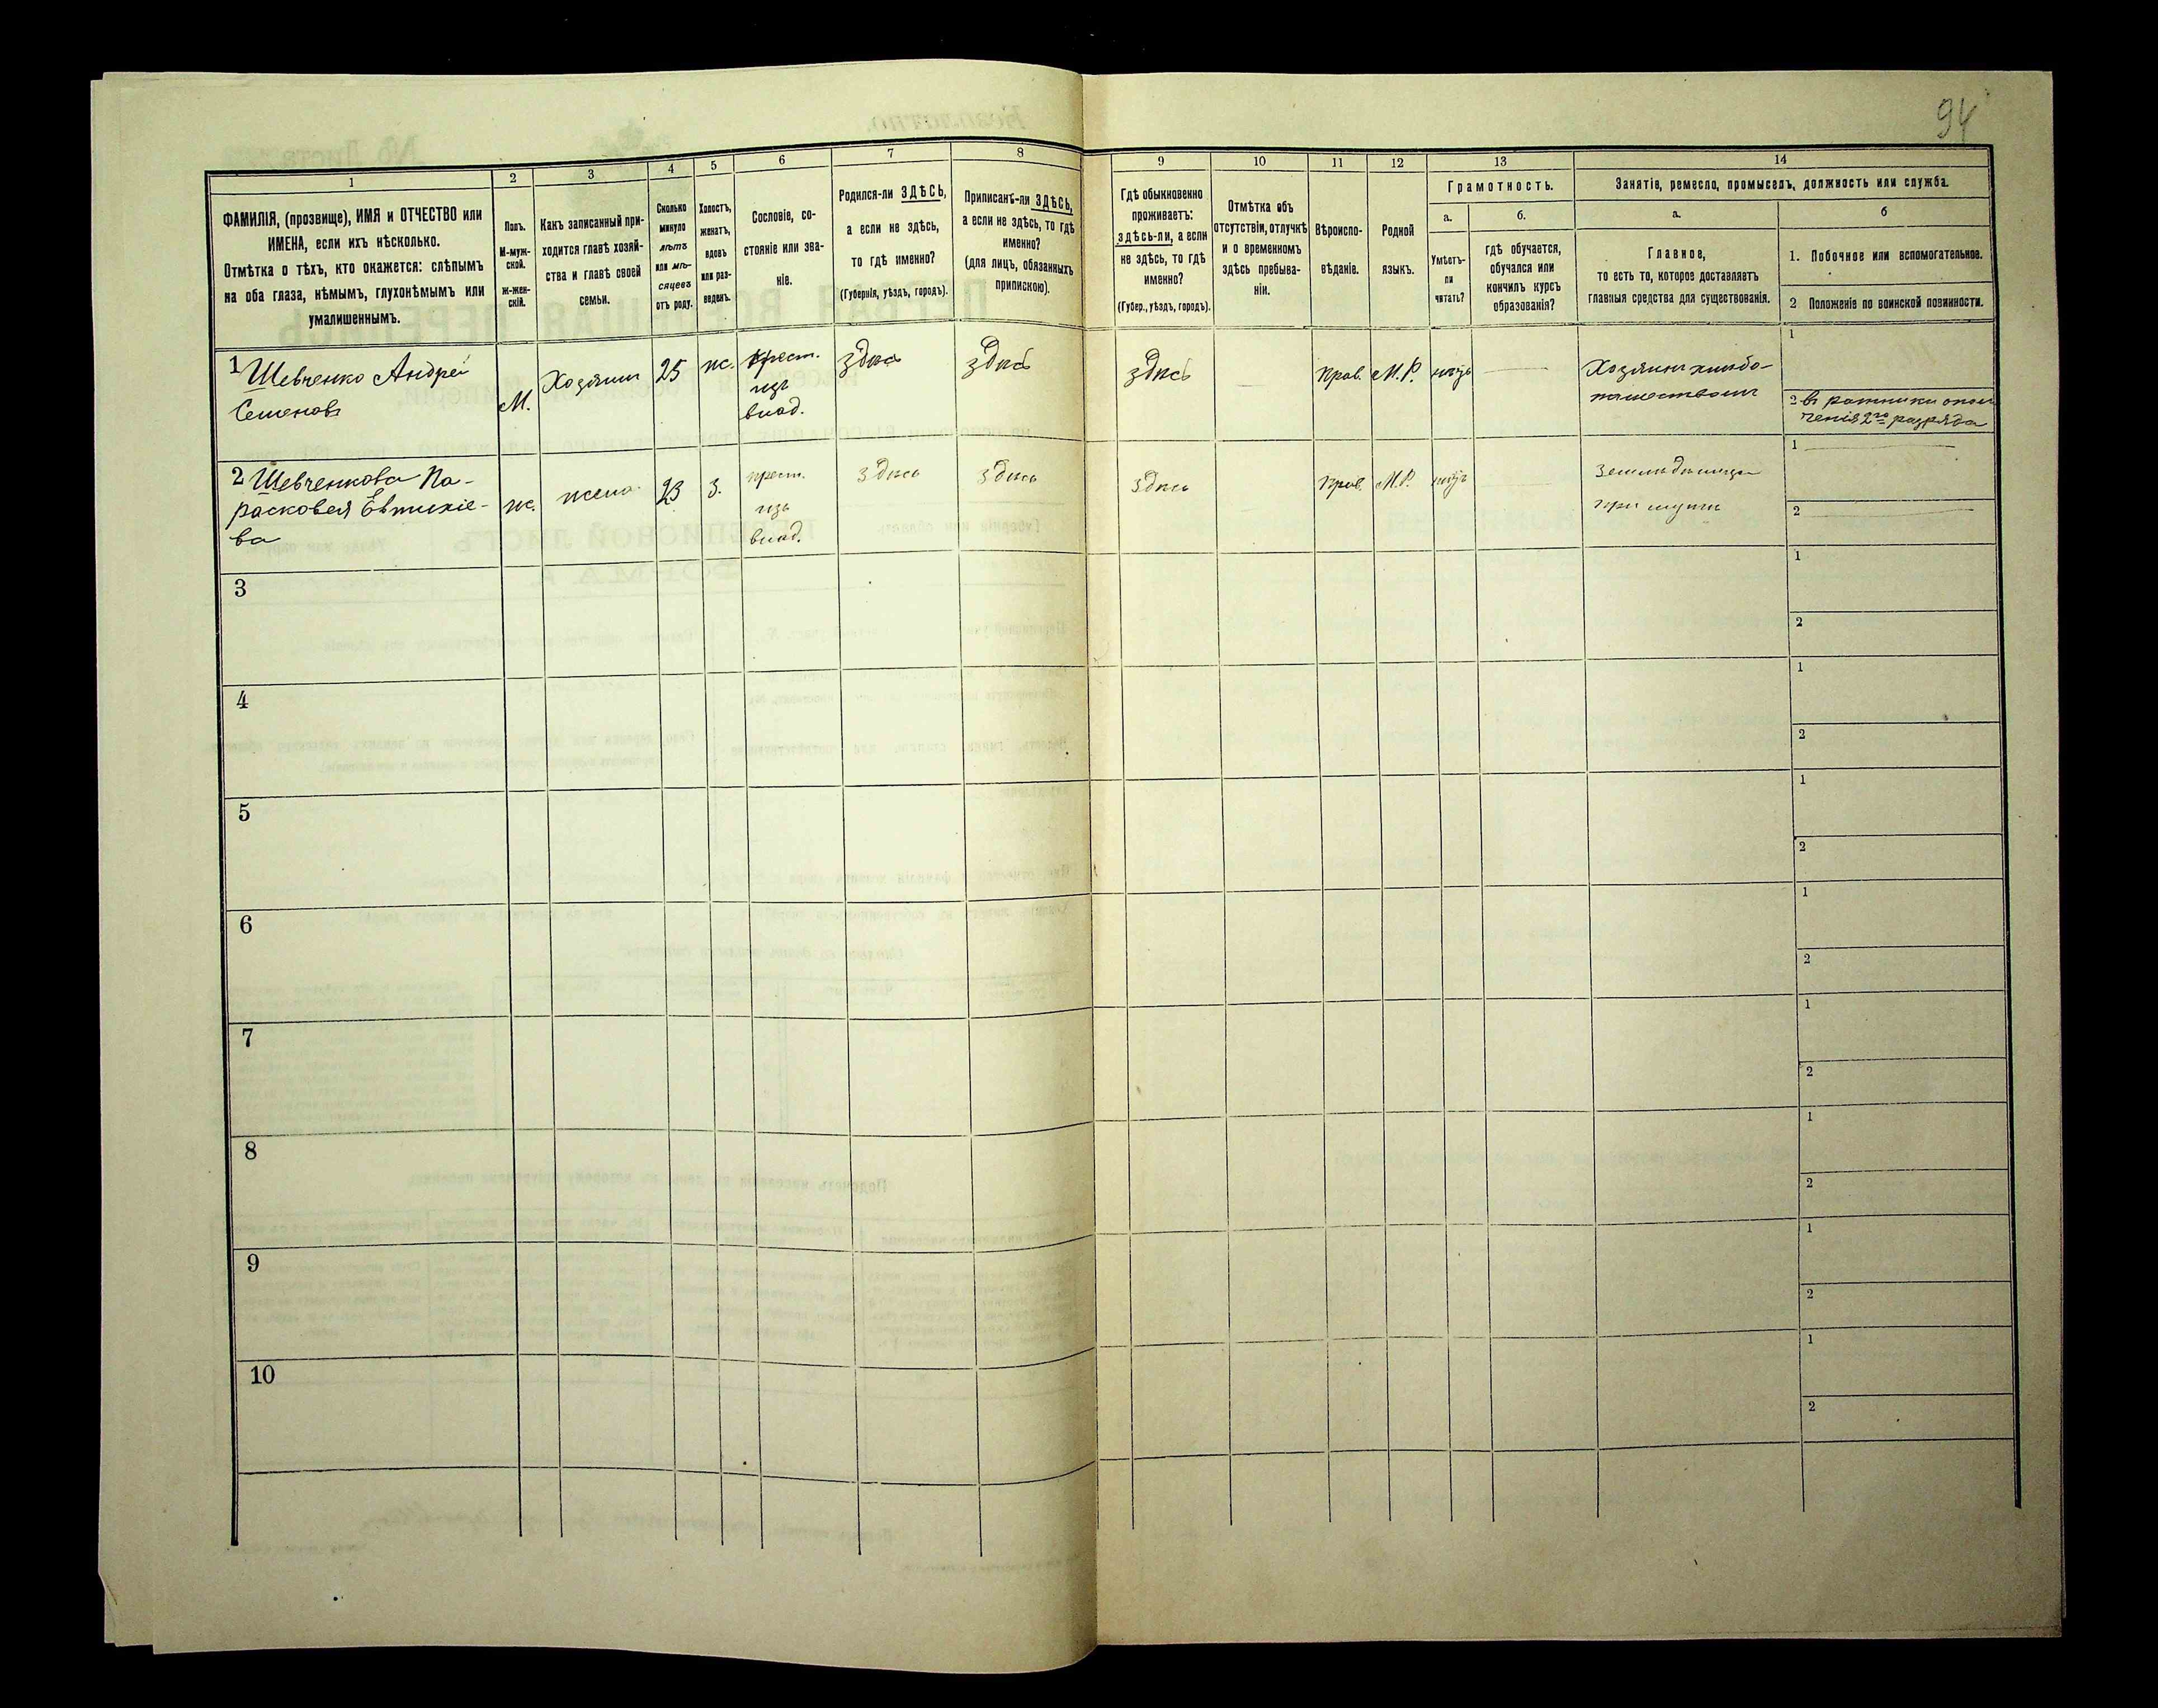 94
1
2
3
4
5
6
7
8
9
10
11
12
13
14
ФАМИЛІЯ, (прозвище), ИМЯ и ОТЧЕСТВО или
ИМЕНА, если ихъ нѣсколько.
Отмѣтка о тѣхъ, кто окажется: слѣпымъ
на оба глаза, нѣмымъ, глухонѣмымъ или
умалишеннымъ.
Полъ.
М-муж-
ской.
ж-жен-
скій.
Какъ записанный при-
ходится главѣ хозяй-
ства и главѣ своей
семьи.
Сколько
минуло
лѣтъ
или мѣ-
сяцевъ
отъ роду.
Холостъ,
женатъ,
вдовъ
или раз-
веденъ.
Сословіе, со-
стояніе или зва-
ніе.
Родился-ли ЗДѢСЬ,
а если не здѣсь,
то гдѣ именно?
(Губернія, уѣздъ, городъ).
Приписанъ-ли ЗДѢСЬ,
а если не здѣсь, то гдѣ
именно?
(для лицъ, обязанныхъ
припискою).
Гдѣ обыкновенно
проживаетъ:
здѣсь-ли, а если
не здѣсь, то гдѣ
именно?
(Губер., уѣздъ, городъ).
Отмѣтка объ
отсутствіи, отлучкѣ
и о временномъ
здѣсь пребыва-
ніи.
Вѣроиспо-
вѣданіе.
Родной
языкъ.
Грамотность.
а.
Умѣетъ-
ли
читать?
б.
гдѣ обучается,
обучался или
кончилъ курсъ
образованія?
Занятіе, ремесло, промыселъ, должность или служба.
а.
Главное,
то есть то, которое доставляетъ
главныя средства для существованія.
б
1. Побочное или вспомогательное.
2 Положеніе по воинской повинности.
1 Шевченко Андрей
Семеновъ
М.
Хозяинъ
25
ж.
Крест.
изъ
влад.
здѣсь
здѣсь
здѣсь
Прав.
М.Р.
Хозяинъ хлѣбо-
пашествомъ
1
2 въ ратники опол
ченія 2го разряда
2 Шевченкова Па-
расковея
ва
ж.
жена
23
З.
крест.
изъ
влад.
здѣсь
здѣсь
здѣсь
Прав.
М.Р.
при мужѣ
1
2
3
1
2
4
1
2
5
1
2
6
1
2
7
1
2
8
1
2
9
1
2
10
1
2